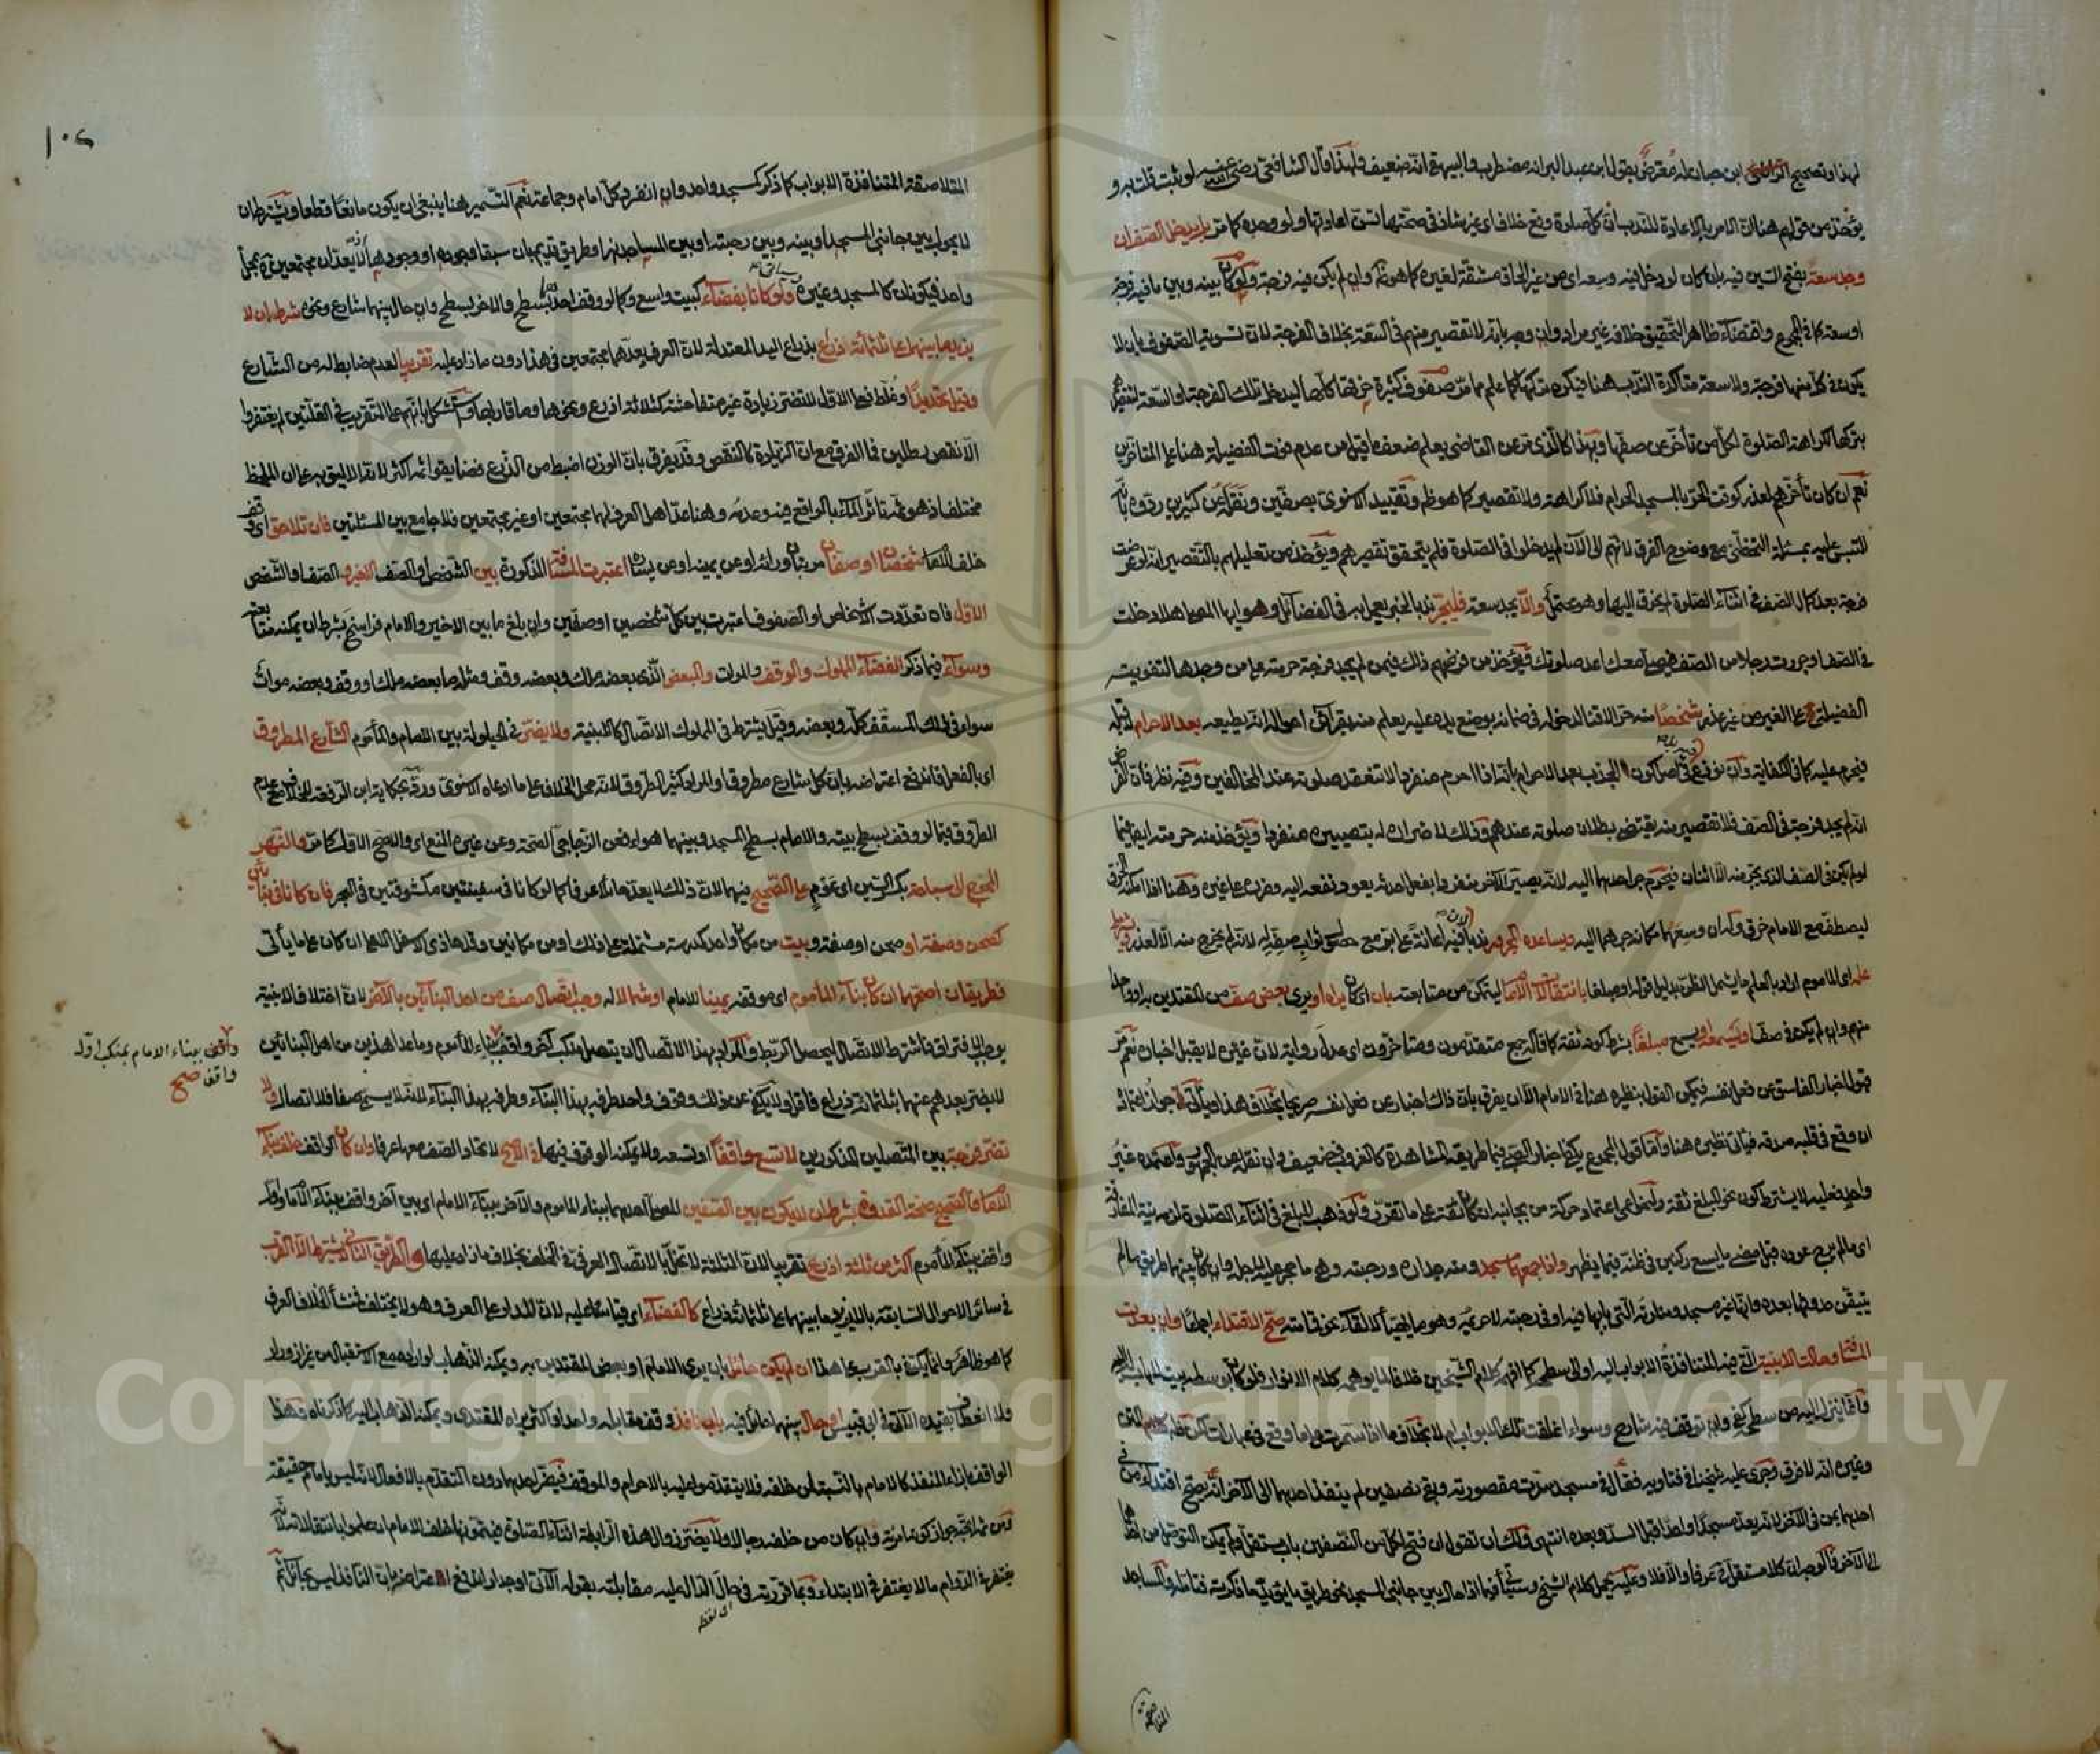 لهذا وتصحيح ابن حبان له معترض بقول ابن عبد البر انه مضطرب والبيهقي انه ضعيف ولهذا قال الشافعي رضي الله عنه لو ثبت قلت به و
يؤخذ من قولهم هنا ان الامر بالاعادة للندب ان كل صلوة وقع خلاف اي غير شاذ في صحتها تسن اعادتها ولو وحده كما مر بل يدخل الصف ان
وجد سعة بفتح السين فيه بان كان لو دخل فيه وسعه اي من غير الحاق مشقة لغيره كما هو ظاهر وان لم يكن فيه فرجة ولو كان بينه وبين ما فيه فرجة
او سعة كما في المجموع واقتضاء ظاهر التحقيق خلافه غير مراد وان وجه بانه لا تقصير منهم في السعة بخلاف الفرجة لان تسوية الصفوف بان لا
يكون في كل منها فرجة ولا سعة متأكدة الندب هنا فيكره تركها كما علم مما مر صفوف كثيرة خرقها كلها ليدخل تلك الفرجة او السعة لتقصيرهم
بتركها لكراهة الصلوة لكل من تأخر عن صفها وبهذا كالذي مر عن القاضي يعلم ضعف ما قيل من عدم فوت الفضيلة هنا على المتأخرين
نعم ان كان تأخرهم لعذر كوقت الحر بالمسجد الحرام فلا كراهة ولا تقصير كما هو ظ وتقييد الاسنوي بصفين ونقله عن كثيرين ردوه بانه
التبس عليه بمسئلة التخطي مع وضوح الفرق لانهم الى الآن لم يدخلوا في الصلوة فلم يتحقق تقصيرهم ويؤخذ من تعليلهم بالتقصير انه لو عرضت
فرجة بعد كمال الصف في اثناء الصلوة لم يخرق اليها وهو محتمل والا يجد سعة فليجر ندبا لخبر يعمل به في الفضائل وهو ايها المصلي هلا دخلت
في الصف او جررت رجلا من الصف فيصلي معك اعد صلوتك ويؤخذ من فرضهم ذلك فيمن لم يجد فرجة حرمته على من وجدها لتفويته
الفضيلة على الغير من غير عذر شخصا منه حرا لا قنا لدخوله في ضمانه بوضع يده عليه يعلم منه بقرائن احواله انه يطيعه بعد الاحرام لا قبله
فيحرم عليه كما في الكفاية وان نوزع في اصل كون الجذب بعد الاحرام بانه اذا احرم منفردا لا تنعقد صلوته عند المخالفين وفيه نظر فان الفرض
انه لم يجد فرجة في الصف فلا تقصير منه يقتضي بطلان صلوته عندهم وذلك لاضراره له بتصييره منفردا ويؤخذ منه حرمته ايضا فيما
لو لم يكن في الصف الذي يجر منه الا اثنان فيحرم جر احدهما اليه لانه يصير الآخر منفردا بفعل احدث يعود نفعه اليه وضرره على غيره وهنا اذا امكنه الخرق
ليصطف مع الامام خرق وله ان وسعهما مكانه جرهما اليه وليساعده المجرور ندبا لان فيه اعانة على بر مع حصول ثواب صفه له لانه لم يخرج منه الا لعذر ويشترط
علمه اي المأموم اراد بالعلم ما يشمل الظن بدليل قوله او مبلغا بانتقالات الامام ليتمكن من متابعته بان اي كان يراه او يرى بعض صف من المقتدين به او واحدا
منهم وان لم يكن في صف او يسمعه او يسمع مبلغا بشرط كونه ثقة كما قاله جمع متقدمون ومتاخرون اي عدل رواية لان غيره لا يقبل اخباره نعم مر
قبول اخبار الفاسق عن فعل نفسه فيمكن القول بنظيره هنا في الامام الا ان يفرق بان ذاك اخبار عن فعل نفسه صريحا بخلاف هذا وياتي جواز اعتماده
ان وقع في قلبه صدقه فياتي نظيره هنا واما قول المجموع يكفي اخبار الصبي فيما طريقه المشاهدة كالغروب فضعيف وان نقله عن الجمهور واعتمده غير
واحد فعليه لا يشترط كون نحو المبلغ ثقة ولنحو اعمى اعتماد حركة من بجانبه ان كان ثقة على ما تقرر ولو ذهب المبلغ في اثناء الصلوة لزمه نية المفارقة
اي ما لم يرج عوده قبل مضي ما يسع ركنين في ظنه فيما يظهر واذا جمعهما مسجد ومنه جداره ورحبته وهي ما حجر عليه لاجله وان كان بينهما طريق ما لم
يتيقن حدوثها بعده وانها غير مسجد ومنارته التي بابها فيه او في رحبته لا حريمه وهو ما يهيأ لالقاء نحو قمامته صح الاقتداء اجماعا وان بعدت
المسافة وحالت الابنية التي فيه المتنافذة الابواب اليه او الى سطحه كما افهمه كلام الشيخين خلافا لما يوهمه كلام الانوار
وسواء اغلقت تلك الابواب ام لا بخلاف ما اذا سمرت
وغيره انه لا فرق وجرى عليه شيخنا في فتاويه فقال في مسجد سدت مقصورته وبقي نصفين لم ينفذ احدهما الى الآخر انه يصح اقتداء من في
احدهما بمن في الآخر لانه يعد مسجدا واحدا قبل السد وبعده انتهى ولك ان تقول ان فتح لكل من النصفين باب مستقل ولم يمكن التوصل من احدهما
الى الآخر فالوجه ان كلا مستقل عرفا والا فلا وعليه يحمل كلام الشيخ وسيأتي فيما اذا حال بين جانبي المسجد نحو طريق ما يؤيد ما ذكرته فتأمله والمساجد
المتلاصقة
١٠٢
المتلاصقة المتنافذة الابواب كما ذكر كمسجد واحد وان انفرد كل امام وجماعة نعم التسمير هنا ينبغي ان يكون مانعا قطعا ويشترط ان
لا يحول بين جانبي المسجد او بينه وبين رحبته او بين المساجد نهر او طريق قديم بان سبقا وجوده او وجودها اذ لا يعدان مجتمعين في محل
واحد فيكونان كالمسجد وغيره وسياتي ولو كانا بفضاء كبيت واسع وكما لو وقف احدهما بسطح والاخر بسطح وان حال بينهما شارع ونحوه شرط ان لا
يزيد ما بينهما على ثلثمائة ذراع بذراع اليد المعتدلة لان العرف يعدهما مجتمعين في هذا دون ما زاد عليه تقريبا لعدم ضابط له من الشارع
وقيل تحديدا وغلط فعلى الاول لا تضر زيادة غير متفاحشة كثلاثة اذرع ونحوها وما قاربها واستشكل بانهم على التقريب في القلتين لم يغتفروا
الا نقص رطلين فما الفرق مع ان الزيادة كالنقص وقد يفرق بان الوزن اضبط من الذرع فضايقوا ثم اكثر لانه الاليق به على ان الملحظ
مختلف اذ هو ثم تاثر الماء بالواقع فيه وعدمه وهنا عد اهل العرف لهما مجتمعين او غير مجتمعين فلا جامع بين المسئلتين فان تلاحق اي وقف
خلف الامام شخصان او صفان مرتبان وراءه او عن يمينه او عن يساره اعتبرت المسافة المذكورة بين الشخص او الصف الاخير والصف او الشخص
الاول فان تعددت الاشخاص او الصفوف اعتبرت بين كل شخصين او صفين وان بلغ ما بين الاخير والامام فراسخ بشرط ان يمكنه متابعته
وسواء فيما ذكر الفضاء المملوك والوقف والموات والمبعض الذي بعضه ملك وبعضه وقف ومثله ما بعضه ملك او وقف وبعضه موات
سواء في ذلك المسقف كله وبعضه وقيل يشترط في المملوك الاتصال كالابنية ولا يضر في الحيلولة بين الامام والمأموم الشارع المطروق
اي بالفعل فاندفع اعتراضه بان كل شارع مطروق او المراد كثير الطروق لانه محل الخلاف على ما ادعاه الاسنوي ورد بحكاية ابن الرفعة الخلاف مع عدم
الطروق فيما لو وقف بسطح بيته والامام بسطح المسجد وبينهما هواء فعن الزجاجي الصحة وعن غيره المنع اي والاصح الاول كما مر والنهر
المحوج الى سباحة بكسر السين اي عوم على الصحيح فيهما لان ذلك لا يعد حائلا عرفا كما لو كانا في سفينتين مكشوفتين في البحر فان كانا في بناءين
كصحن وصفة او صحن او صفة وبيت من مكان واحد كمدرسة مشتملة على ذلك او من مكانين وقد حاذى الاسفل الاعلى ان كان على ما ياتي
فطريقان اصحهما ان كان بناء المأموم اي موقفه يمينا للامام او شمالا له وجب اتصال صف من احد البناءين بالآخر لان اختلاف الابنية
يوجب الافتراق فاشترط الاتصال ليحصل الربط والمراد بهذا الاتصال ان يتصل منكب آخر واقف ببناء المأموم وما عدا هذين من اهل البنائين
لا يضر بعدهم عنهما بثلثمائة ذراع فاقل ولا يكفي عن ذلك وقوف واحد طرفه بهذا البناء وطرفه بهذا البناء لانه لا يسمى صفا فلا اتصال ولا
تضر فرجة بين المتصلين المذكورين لا تسع واقفا او تسعه ولا يمكنه الوقوف فيها في الاصح لاتحاد الصف معها عرفا وان كان الواقف خلف بناء
الامام فالصحيح صحة القدوة بشرط ان لا يكون بين الصفين للمصلي احدهما ببناء المأموم والآخر ببناء الامام اي بين آخر واقف ببناء الامام واول
واقف ببناء المأموم اكثر من ثلثة اذرع تقريبا لان الثلاثة لا تخل بالاتصال العرفي في الخلف بخلاف ما زاد عليها والطريق الثاني لا يشترط الا القرب
في سائر الاحوال السابقة بان لا يزيد ما بينهما على ثلثمائة ذراع كالفضاء اي قياسا عليه لان المدار على العرف وهو لا يختلف فمنشأ الخلاف العرف
كما هو ظاهر وانما يكتفى بالقرب على هذا ان لم يكن حائل بان يرى الامام او بعض المقتدين به ويمكنه الذهاب لو اراده مع الاستقبال من غير ازورار
ولا انعطاف بقيده الآتي في ابي قبيس او حال بينهما حائل فيه باب نافذ وقف مقابله واحد او اكثر يراه المقتدي ويمكنه الذهاب اليه كما ذكرناه وهذا
الواقف بازاء المنفذ كالامام بالنسبة لمن خلفه فلا يتقدموا عليه بالاحرام والموقف فيضر احدهما دون التقدم بالافعال لانه ليس بامام حقيقة
ومن ثم اتجه جواز كونه امرأة وان كان من خلفه رجالا ولا يضر زوال هذه الرابطة اثناء الصلوة فيتمونها خلف الامام ان علموا بانتقالاته لانه
يغتفر في الدوام ما لا يغتفر في الابتداء وبما قررته في حال الدال عليه مقابلته بقوله الآتي او جدار اندفع اعتراضه بان النافذ ليس بحائل ثم
اي لفظ
واقف ببناء الامام بمنكب اول
واقف صح